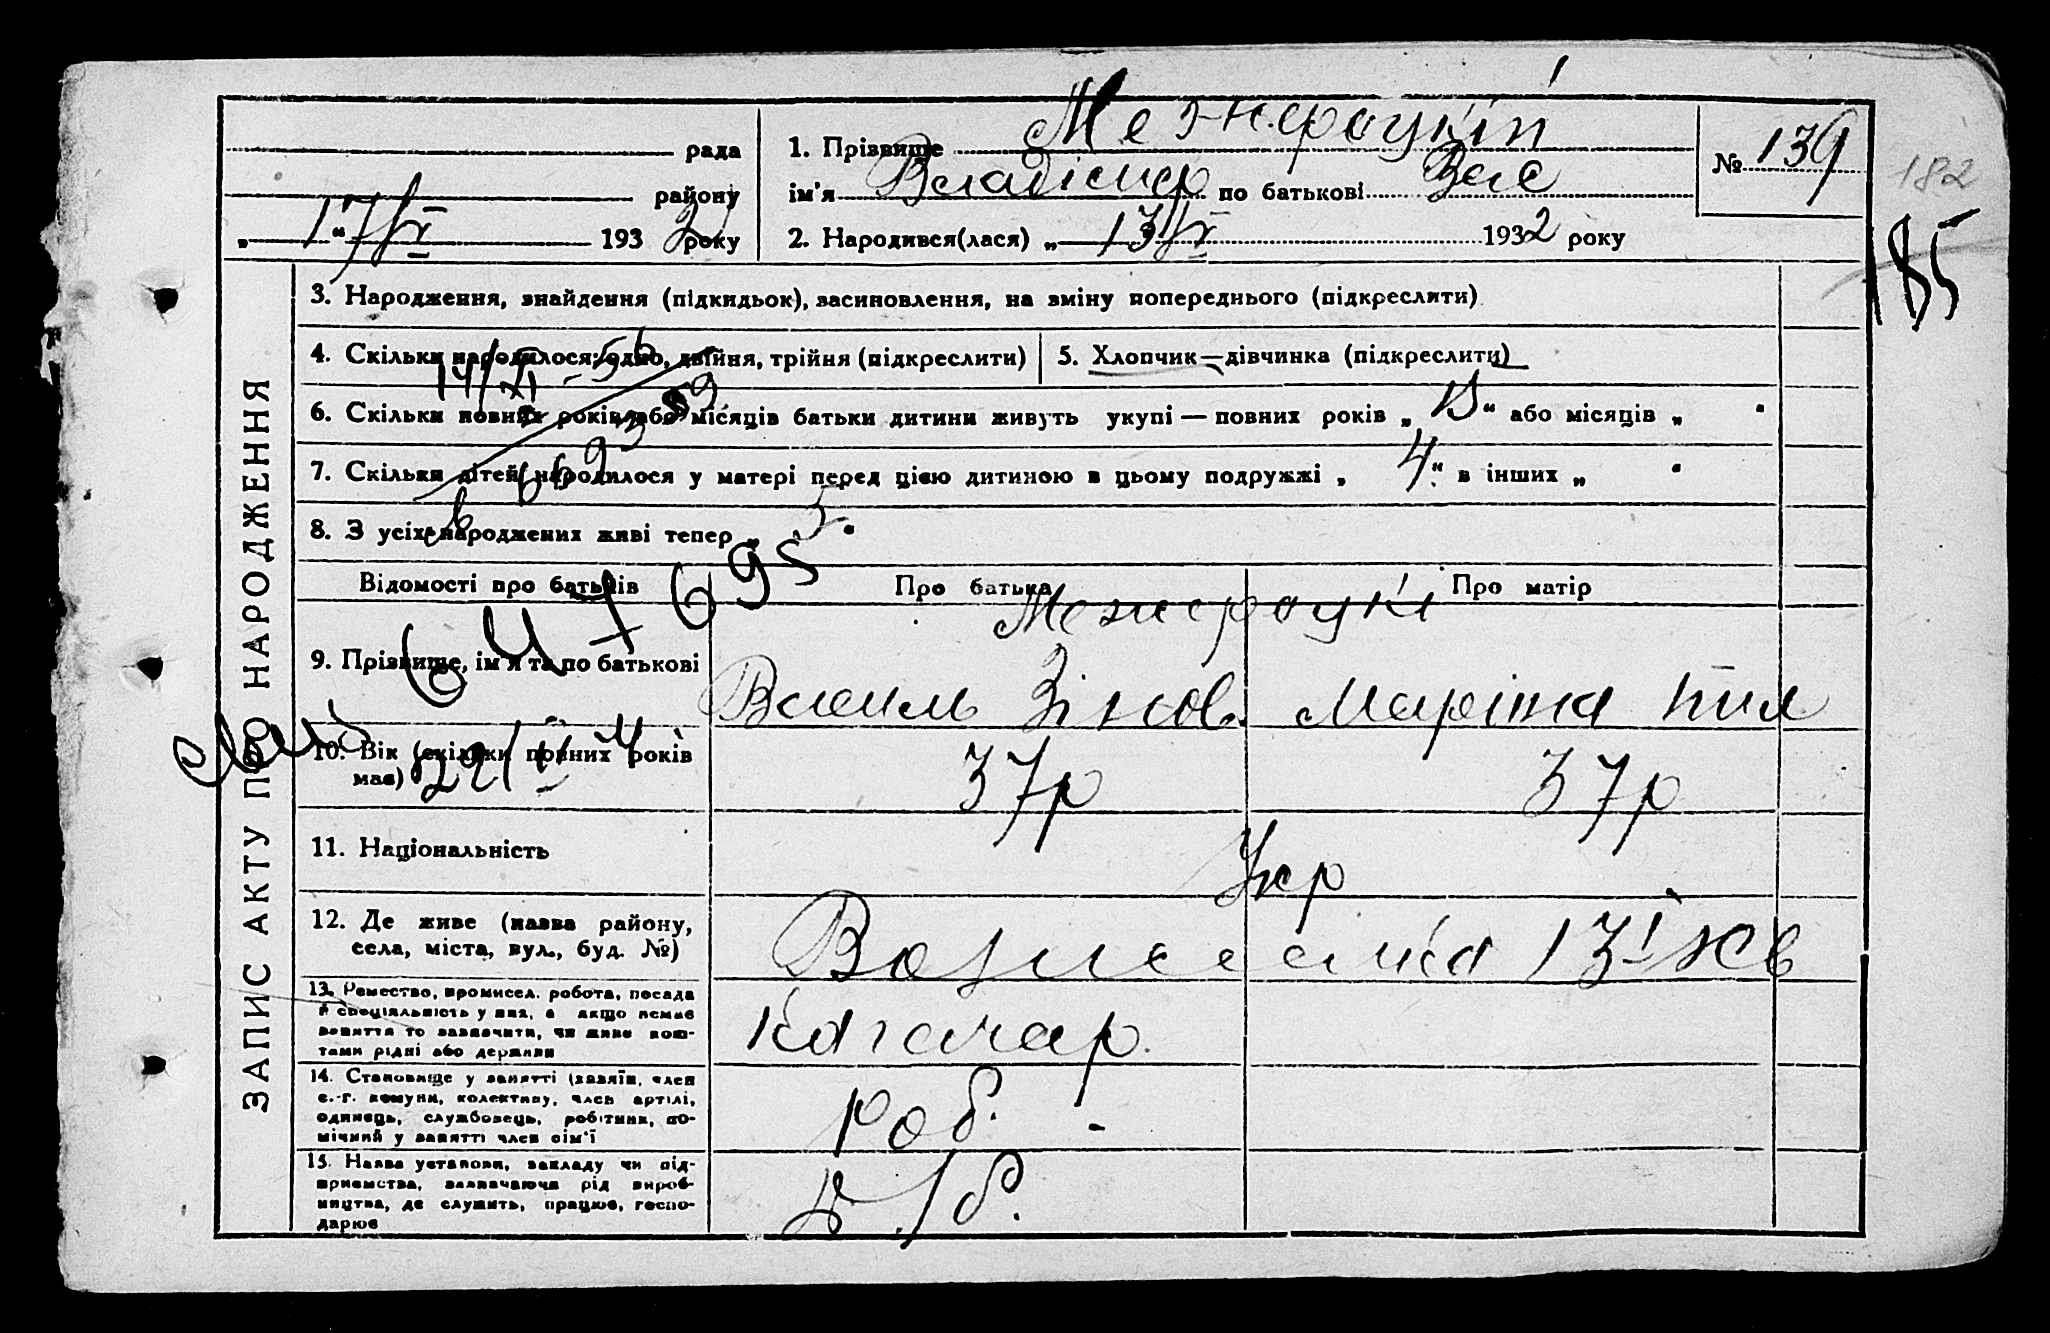 рада
району
„ 17/IV “ 1932 року
1. Прізвище Межероцкій
ім'я Владімир по батькові Вас
2. Народився(лася) „ 13/IV 1932 року
№ 139
182
185
ЗАПИС АКТУ ПРО НАРОДЖЕННЯ
3. Народження, знайдення (підкидьок), засиновлення, на зміну попереднього (підкреслити)
4. Скільки народилося: одно, двійня, трійня (підкреслити)
5. Хлопчик—дівчинка (підкреслити)
6. Скільки повних років або місяців батьки дитини живуть укупі — повних років „ “ або місяців „ “
7. Скільки дітей народилося у матері перед цією дитиною в цьому подружжі „ 4 “ в інших „ “
8. З усіх народжених живі тепер „ 5 “
Відомості про батьків Про батька Про матір
9. Прізвище, ім'я та по батькові
Василь Зінов. Маріна
10. Вік (скільки повних років
має) 37р 37р
11. Національність Укр
12. Де живе (назва району,
села, міста, вул., буд. №)
13. Ремество, промисел, робота, посада
й спеціяльність у них, а якщо немає
заняття то зазначити, чи живе кош-
тами рідні або держави
14. Становище у занятті (хазяїн, член
с.-г. комуни, колективу, член артілі,
одинець, службовець, робітник, по-
мічний у занятті член сім'ї
Роб.
15. Назва установи, закладу чи під-
приємства, зазначаючи рід вироб-
ництва, де служить, працює, госпо-
дарює